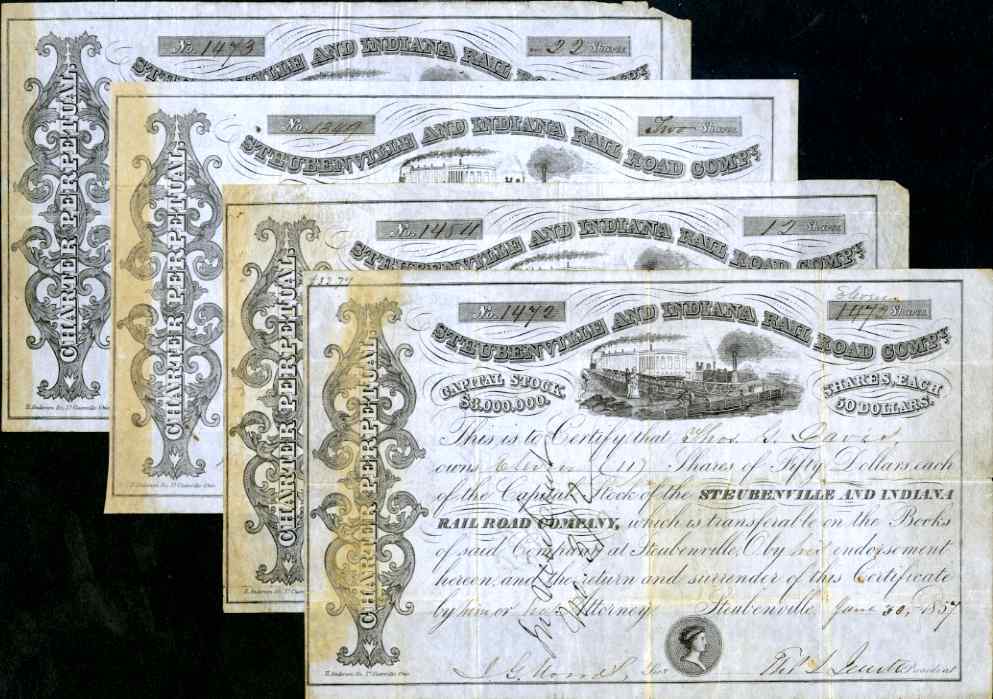 No. 1473
22 Shares
STEUBENVILLE AND INDIANA RAIL ROAD COMPY
CHARTER PERPETUAL
No. 1349
Two Shares
STEUBENVILLE AND INDIANA RAIL ROAD COMPY
CHARTER PERPETUAL
No. 1484
12 Shares
STEUBENVILLE AND INDIANA RAIL ROAD COMPY
CHARTER PERPETUAL
No. 1472
Eleven
1472 Shares
STEUBENVILLE AND INDIANA RAIL ROAD COMPY
CHARTER PERPETUAL
CAPITAL STOCK $3,000,000.
SHARES, EACH 50 DOLLARS.
This is to Certify that Thos. B. Davis,
owns Eleven (11) Shares of Fifty Dollars each
of the Capital Stock of the STEUBENVILLE AND INDIANA
RAIL ROAD COMPANY, which is transferable on the Books
of said Company at Steubenville, O. by his endorsement
hereon, and the return and surrender of this Certificate
by him or his Attorney Steubenville, June 30, 1857
President